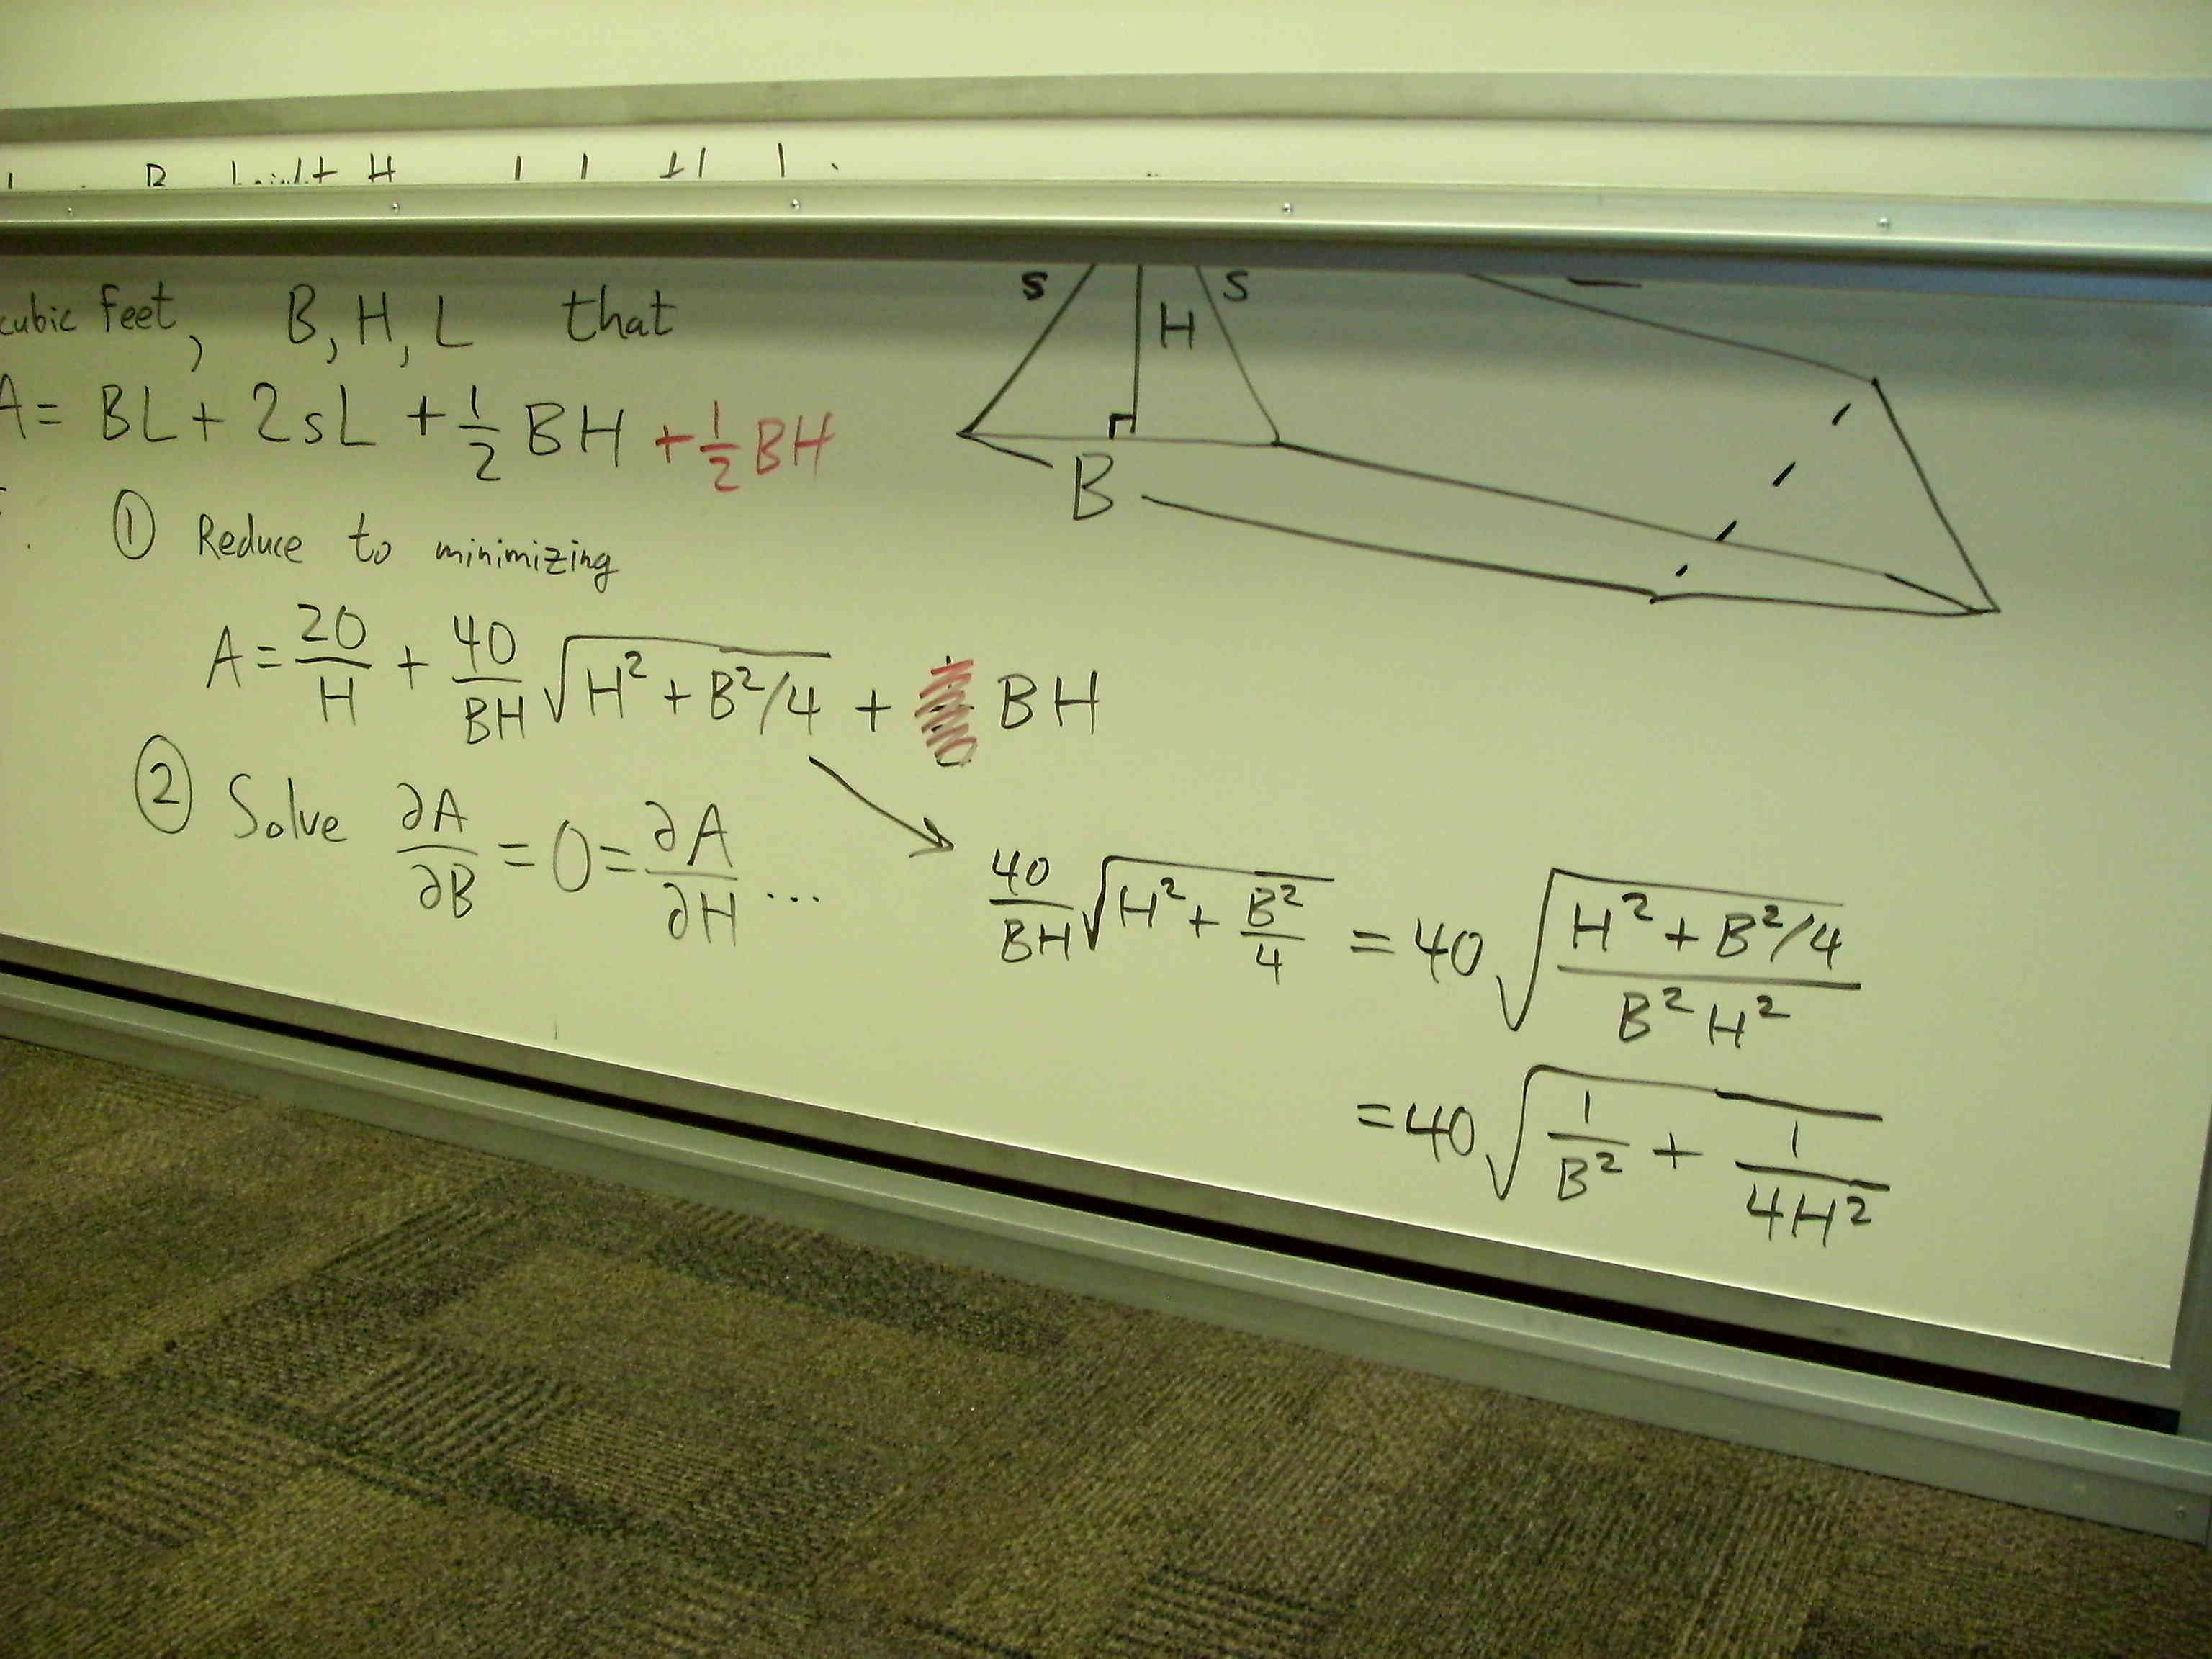 B height H
cubic feet, B, H, L that
A = BL + 2sL + 1/2 BH + 1/2 BH
① Reduce to minimizing
A = 20/H + 40/BH √(H² + B²/4) + BH
② Solve ∂A/∂B = 0 = ∂A/∂H ...
40/BH √(H² + B²/4) = 40 √((H² + B²/4)/(B²H²))
= 40 √(1/B² + 1/4H²)
s
H
s
B